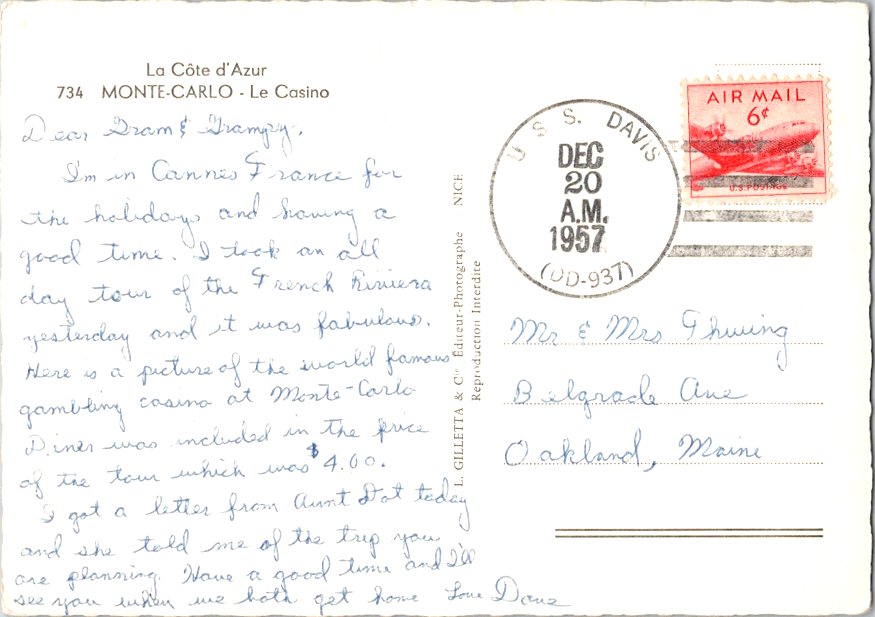 La Côte d'Azur
734 MONTE-CARLO - Le Casino
Dear Gram & Grampy,
I'm in Cannes France for
the holidays and having a
good time. I took an all
day tour of the French Riviera
yesterday and it was fabulous.
Here is a picture of the world famous
gambling casino at Monte-Carlo
Diner was included in the price
of the tour which was $4.00.
I got a letter from Aunt Dot today
and she told me of the trip you
are planning. Have a good time and I'll
see you when we both get home Love Dave
L. GILLETTA & Cie Éditeur-Photographe NICE
Reproduction Interdite
U.S.S. DAVIS
DEC
20
A.M.
1957
(DD-937)
AIR MAIL
6¢
U.S. POSTAGE
Mr & Mrs Thwing
Belgrade Ave
Oakland, Maine